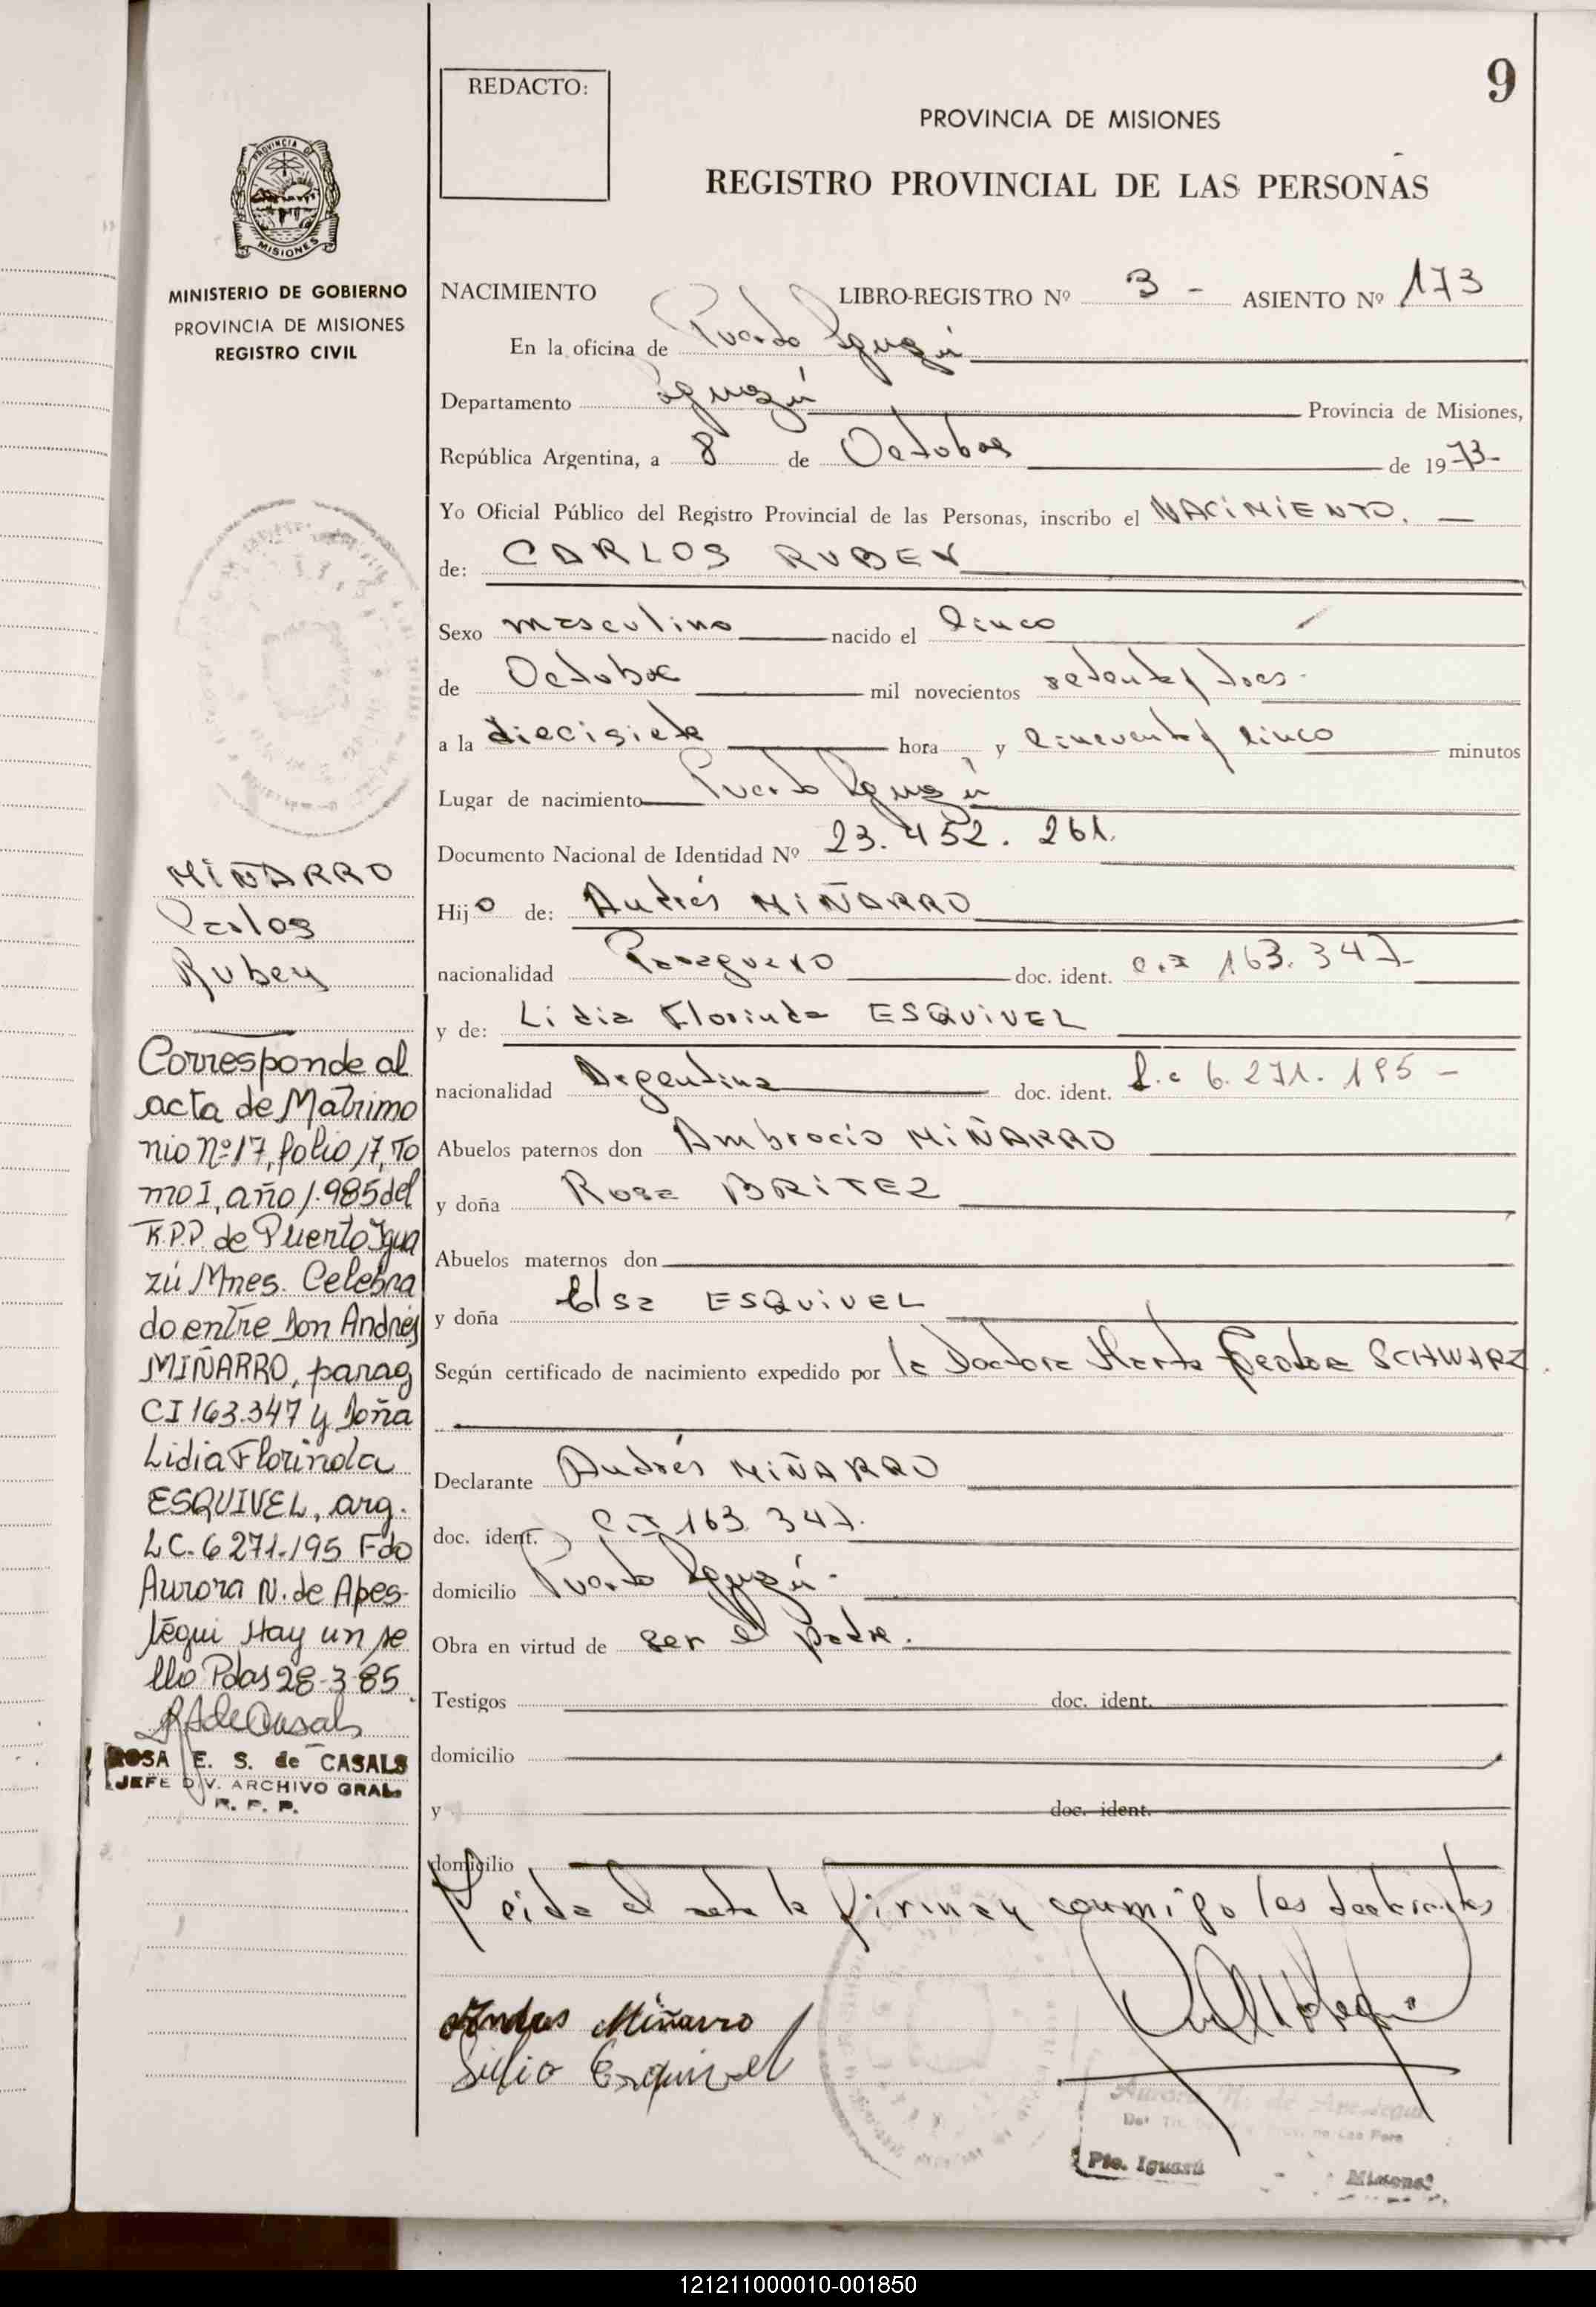 9
REDACTO:
PROVINCIA DE MISIONES
REGISTRO PROVINCIAL DE LAS PERSONAS
PROVINCIA DE
MISIONES
MINISTERIO DE GOBIERNO
PROVINCIA DE MISIONES
REGISTRO CIVIL
NACIMIENTO LIBRO-REGISTRO Nº 3 - ASIENTO Nº 173
En la oficina de Puerto Iguazú
Departamento Iguazú Provincia de Misiones,
República Argentina, a 8 de Octubre de 1973-
Yo Oficial Público del Registro Provincial de las Personas, inscribo el NACIMIENTO. —
de: CARLOS RUBEN
Sexo masculino nacido el cinco
de Octubre mil novecientos setenta y tres-
a la diecisiete hora y cincuenta y cinco minutos
Lugar de nacimiento Puerto Iguazú
Documento Nacional de Identidad Nº 23.452.261.
Hijo de: Andrés MIÑARRO
nacionalidad Paraguayo doc. ident. C.I 163.347-
y de: Lidia Florinda ESQUIVEL
nacionalidad Argentina doc. ident. L.c 6.271.195 -
Abuelos paternos don Ambrocio MIÑARRO
y doña Rosa BRITEZ
Abuelos maternos don
y doña Elsa ESQUIVEL
Según certificado de nacimiento expedido por la Doctora Marta SCHWARZ.
Declarante Andrés MIÑARRO
doc. ident. C.I 163.347.
domicilio Puerto Iguazú-
Obra en virtud de ser el padre.
Testigos doc. ident.
domicilio
y doc. ident.
domicilio
Leida el acta la firman conmigo los declarantes
Andres Miñarro
Lidia Esquivel
Aurora N. de Apestegui
Pto. Iguazú Misiones
MIÑARRO
Carlos
Ruben
Corresponde al
acta de Matrimo
nio nº17, folio 17, To
mo I, año 1.985 del
R.P.P. de Puerto Igua
zú Mnes. Celebra
do entre Don Andrés
MIÑARRO, parag
CI 163.347 y Doña
Lidia Florinda
ESQUIVEL, arg.
LC. 6 271.195 Fdo
Aurora N. de Apes-
tégui Hay un se
llo Pdas 28-3-85
ROSA E. S. de CASALS
JEFE DIV. ARCHIVO GRAL.
R. P. P.
121211000010-001850